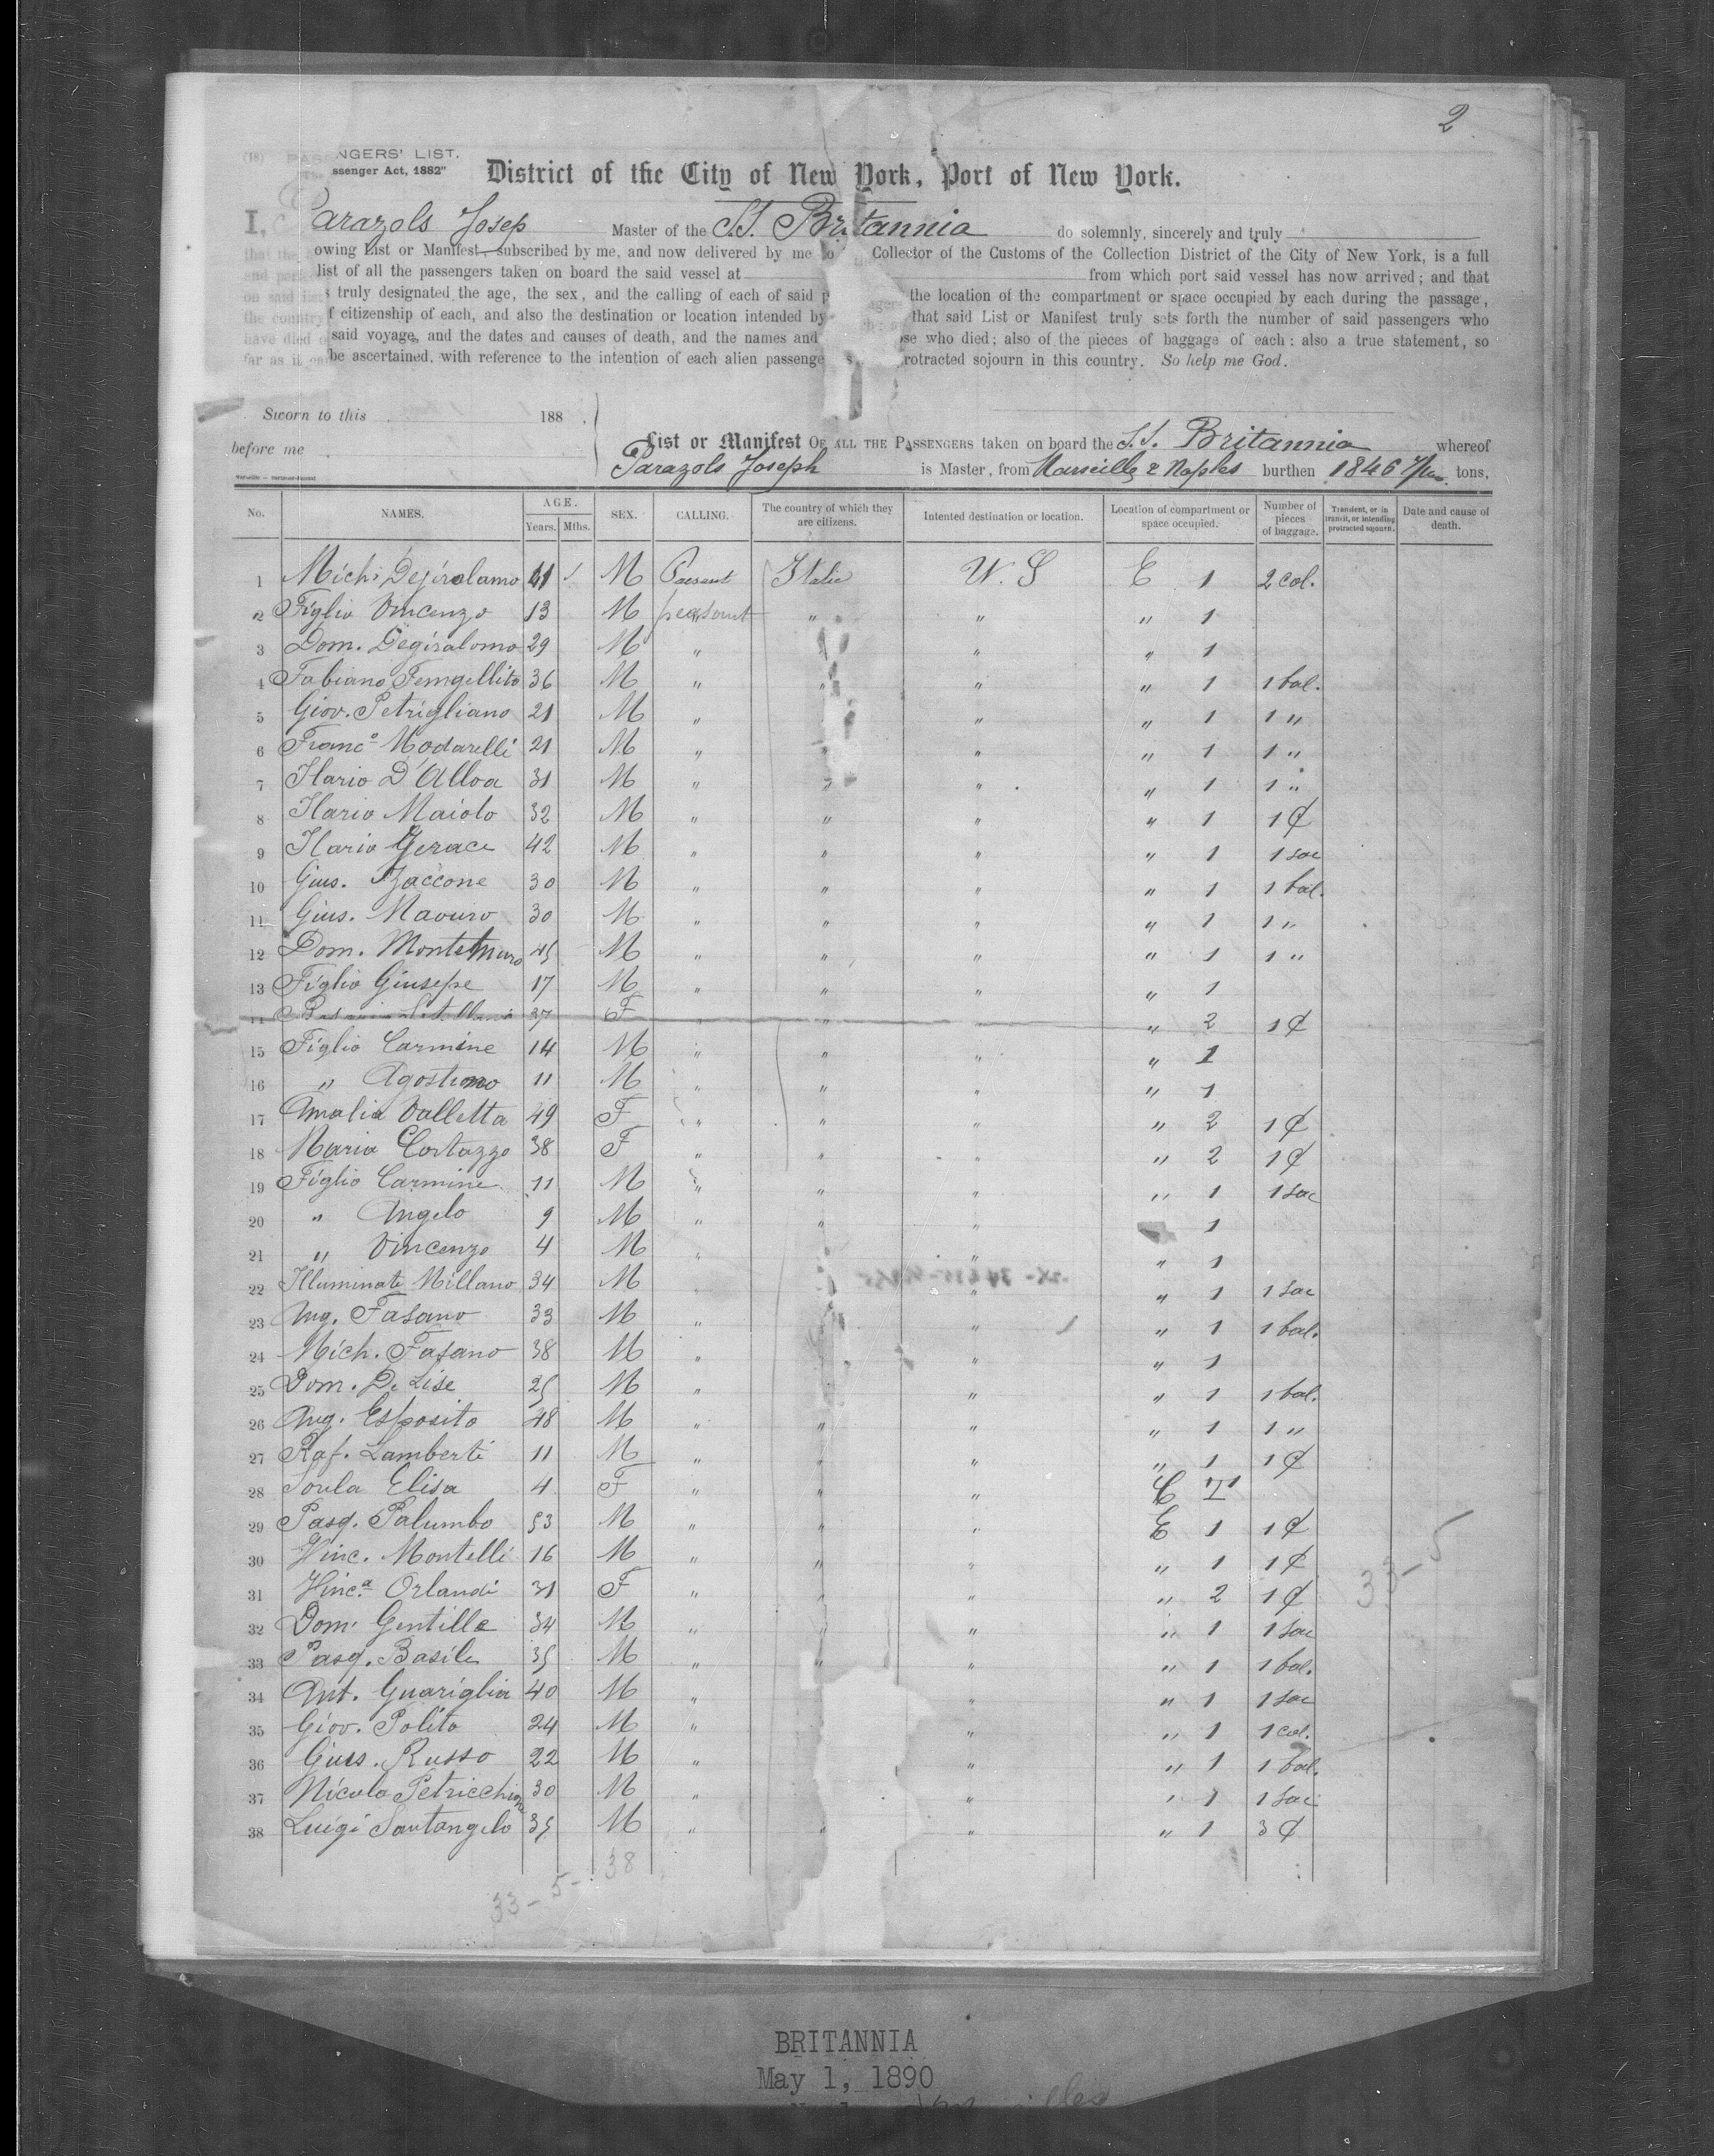 2
(18) PASSENGERS' LIST.
ssenger Act, 1882"
District of the City of New York, Port of New York.
I, Parazols Josep Master of the S.S. Britannia do solemnly, sincerely and truly
that the owing List or Manifest subscribed by me, and now delivered by me to the Collector of the Customs of the Collection District of the City of New York, is a full
and list of all the passengers taken on board the said vessel at from which port said vessel has now arrived; and that
on said list s truly designated the age, the sex, and the calling of each of said p the location of the compartment or space occupied by each during the passage,
the country f citizenship of each, and also the destination or location intended by that said List or Manifest truly sets forth the number of said passengers who
have died said voyage, and the dates and causes of death, and the names and ose who died; also of the pieces of baggage of each: also a true statement, so
far as it can be ascertained, with reference to the intention of each alien passenge rotracted sojourn in this country. So help me God.
Sworn to this 188
before me
List or Manifest OF ALL THE PASSENGERS taken on board the S.S. Britannia whereof
Parazols Joseph is Master, from Marseille & Naples burthen 1846 tons,
No. NAMES. AGE. Years. Mths. SEX. CALLING. The country of which they are citizens. Intended destination or location. Location of compartment or space occupied. Number of pieces of baggage. Transient, or in transit, or intending protracted sojourn. Date and cause of death.
1 Mich. Degiralamo 41 M Paesant Italie U.S E 1 2 col.
2 Figlio Vincenzo 13 M peasant " " " 1
3 Dom. Degiralomo 29 M " " " 1
4 Fabiano Femgellito 36 M " " " " 1 1 bal.
5 Giov. Petrigliano 21 M " " " 1 1 "
6 Franco Modarelli 21 M " " " 1 1 "
7 Ilario D'Alloa 31 M " " " " 1 1 "
8 Ilario Maiolo 32 M " " " " 1 1 ₵
9 Ilario Gerace 42 M " " " " 1 1 sac
10 Gius. Zaccone 30 M " " " " 1 1 bal.
11 Gius. Mavuro 30 M " " " " 1 1 "
12 Dom. Montemuro 45 M " " " " 1 1 "
13 Figlio Giusepe 17 M " " " " 1
14 37 F " " " " 2 1 ₵
15 Figlio Carmine 14 M " " " " 1
16 " Agostino 11 M " " " " 1
17 Amalia Valletta 49 F " " " " 2 1 ₵
18 Maria Cortazzo 38 F " " " " 2 1 ₵
19 Figlio Carmine 11 M " " " " 1 1 sac
20 " Angelo 9 M " " " 1
21 " Vincenzo 4 M " " " " 1
22 Illuminato Millano 34 M " " " 1 1 sac
23 Ang. Fasano 33 M " " " 1 1 bal.
24 Mich. Fasano 38 M " " " 1
25 Dom. De Lise 25 M " " " 1 1 bal.
26 Ang. Esposito 48 M " " " " 1 1 "
27 Raf. Lamberti 11 M " " " " 1 1 ₵
28 Elisa 4 F " " " C 1
29 Pasq. Palumbo 53 M " " " E 1 1 ₵
30 Vinc. Montelli 16 M " " " " 1 1 ₵
31 Vinca Orlandi 31 F " " " " 2 1 ₵
32 Dom. Gentille 34 M " " " " 1 1 sac
33 Pasq. Basile 35 M " " " " 1 1 bal.
34 Ant. Guariglia 40 M " " " 1 1 sac
35 Giov. Polito 24 M " " " 1 1 col.
36 Gius. Russo 22 M " " " 1 1 bal.
37 Nicola Petricchione 30 M " " " 1 1 sac
38 Luigi Santangelo 35 M " " " " 1 3 ₵
33-5
33-5-38
BRITANNIA
May 1, 1890